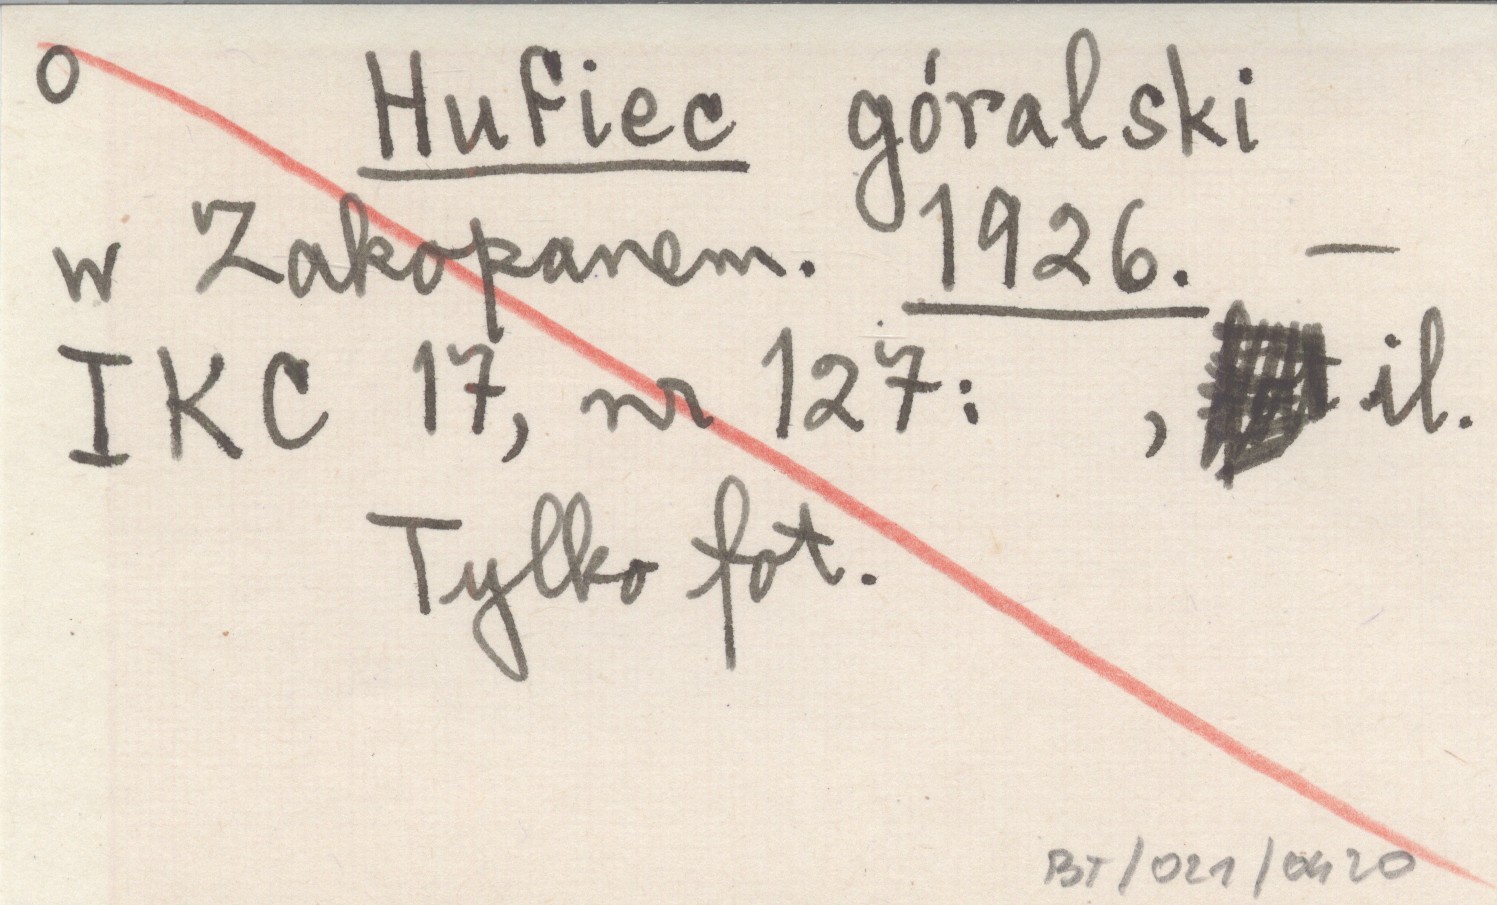 o Hufiec góralski
w Zakopanem. 1926. —
IKC 17, nr 127: , il.
Tylko fot.
BT/021/0420